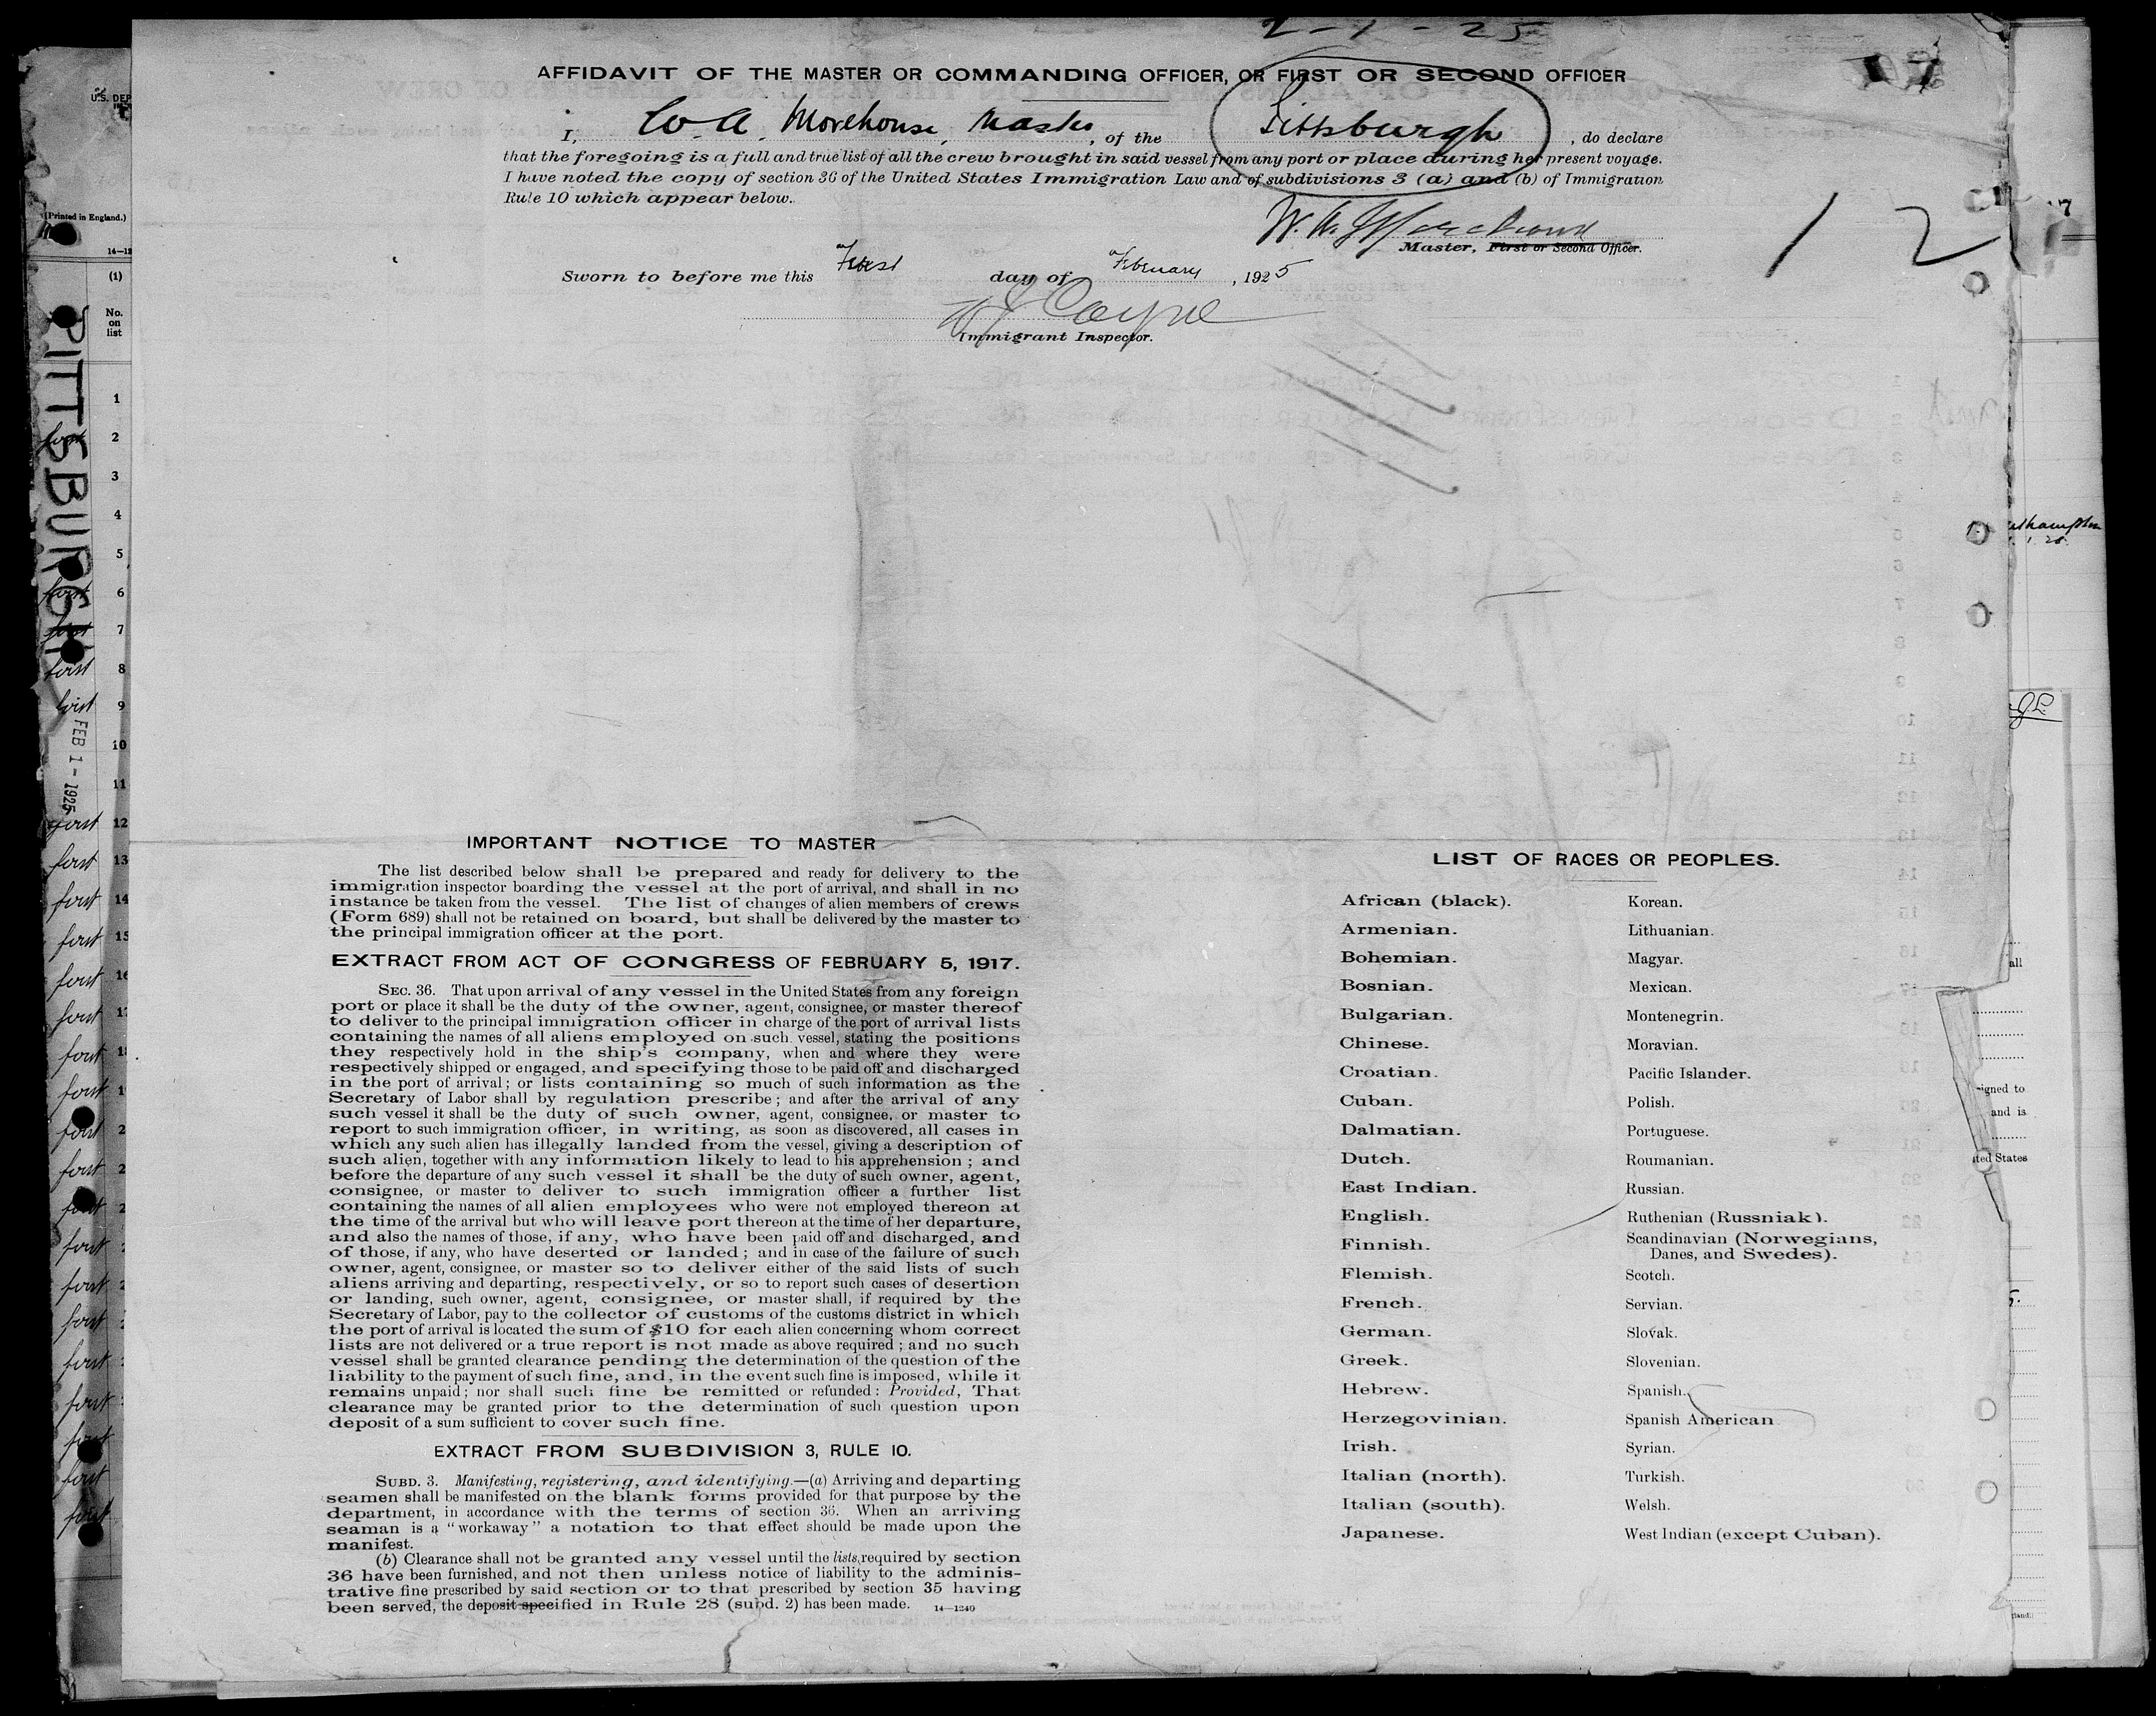 2-1-25
AFFIDAVIT OF THE MASTER OR COMMANDING OFFICER, OR FIRST OR SECOND OFFICER
17
I, W. A. Morehouse, Master, of the Pittsburgh, do declare
that the foregoing is a full and true list of all the crew brought in said vessel from any port or place during her present voyage.
I have noted the copy of section 36 of the United States Immigration Law and of subdivisions 3 (a) and (b) of Immigration
Rule 10 which appear below.
W. A. Morehouse
Master, First or Second Officer.
1 2
Sworn to before me this First day of February, 1925
Coyne
Immigrant Inspector.
U.S. DEP
(Printed in England.)
14-12
(1)
No.
on
list
PITTSBURGH
1
2
3
4
5
6
7
8
9
10
11
12
13
14
15
FEB 1 - 1925
first
first
first
first
first
first
IMPORTANT NOTICE TO MASTER
The list described below shall be prepared and ready for delivery to the
immigration inspector boarding the vessel at the port of arrival, and shall in no
instance be taken from the vessel. The list of changes of alien members of crews
(Form 689) shall not be retained on board, but shall be delivered by the master to
the principal immigration officer at the port.
EXTRACT FROM ACT OF CONGRESS OF FEBRUARY 5, 1917.
SEC. 36. That upon arrival of any vessel in the United States from any foreign
port or place it shall be the duty of the owner, agent, consignee, or master thereof
to deliver to the principal immigration officer in charge of the port of arrival lists
containing the names of all aliens employed on such vessel, stating the positions
they respectively hold in the ship's company, when and where they were
respectively shipped or engaged, and specifying those to be paid off and discharged
in the port of arrival; or lists containing so much of such information as the
Secretary of Labor shall by regulation prescribe; and after the arrival of any
such vessel it shall be the duty of such owner, agent, consignee, or master to
report to such immigration officer, in writing, as soon as discovered, all cases in
which any such alien has illegally landed from the vessel, giving a description of
such alien, together with any information likely to lead to his apprehension; and
before the departure of any such vessel it shall be the duty of such owner, agent,
consignee, or master to deliver to such immigration officer a further list
containing the names of all alien employees who were not employed thereon at
the time of the arrival but who will leave port thereon at the time of her departure,
and also the names of those, if any, who have been paid off and discharged, and
of those, if any, who have deserted or landed; and in case of the failure of such
owner, agent, consignee, or master so to deliver either of the said lists of such
aliens arriving and departing, respectively, or so to report such cases of desertion
or landing, such owner, agent, consignee, or master shall, if required by the
Secretary of Labor, pay to the collector of customs of the customs district in which
the port of arrival is located the sum of $10 for each alien concerning whom correct
lists are not delivered or a true report is not made as above required; and no such
vessel shall be granted clearance pending the determination of the question of the
liability to the payment of such fine, and, in the event such fine is imposed, while it
remains unpaid; nor shall such fine be remitted or refunded: Provided, That
clearance may be granted prior to the determination of such question upon
deposit of a sum sufficient to cover such fine.
EXTRACT FROM SUBDIVISION 3, RULE 10.
SUBD. 3. Manifesting, registering, and identifying.—(a) Arriving and departing
seamen shall be manifested on the blank forms provided for that purpose by the
department, in accordance with the terms of section 36. When an arriving
seaman is a "workaway" a notation to that effect should be made upon the
manifest.
(b) Clearance shall not be granted any vessel until the lists required by section
36 have been furnished, and not then unless notice of liability to the adminis-
trative fine prescribed by said section or to that prescribed by section 35 having
been served, the deposit specified in Rule 28 (subd. 2) has been made. 14—1240
LIST OF RACES OR PEOPLES.
African (black).
Armenian.
Bohemian.
Bosnian.
Bulgarian.
Chinese.
Croatian.
Cuban.
Dalmatian.
Dutch.
East Indian.
English.
Finnish.
Flemish.
French.
German.
Greek.
Hebrew.
Herzegovinian.
Irish.
Italian (north).
Italian (south).
Japanese.
Korean.
Lithuanian.
Magyar.
Mexican.
Montenegrin.
Moravian.
Pacific Islander.
Polish.
Portuguese.
Roumanian.
Russian.
Ruthenian (Russniak).
Scandinavian (Norwegians,
Danes, and Swedes).
Scotch.
Servian.
Slovak.
Slovenian.
Spanish.
Spanish American
Syrian.
Turkish.
Welsh.
West Indian (except Cuban).
all
signed to
and is
ted States